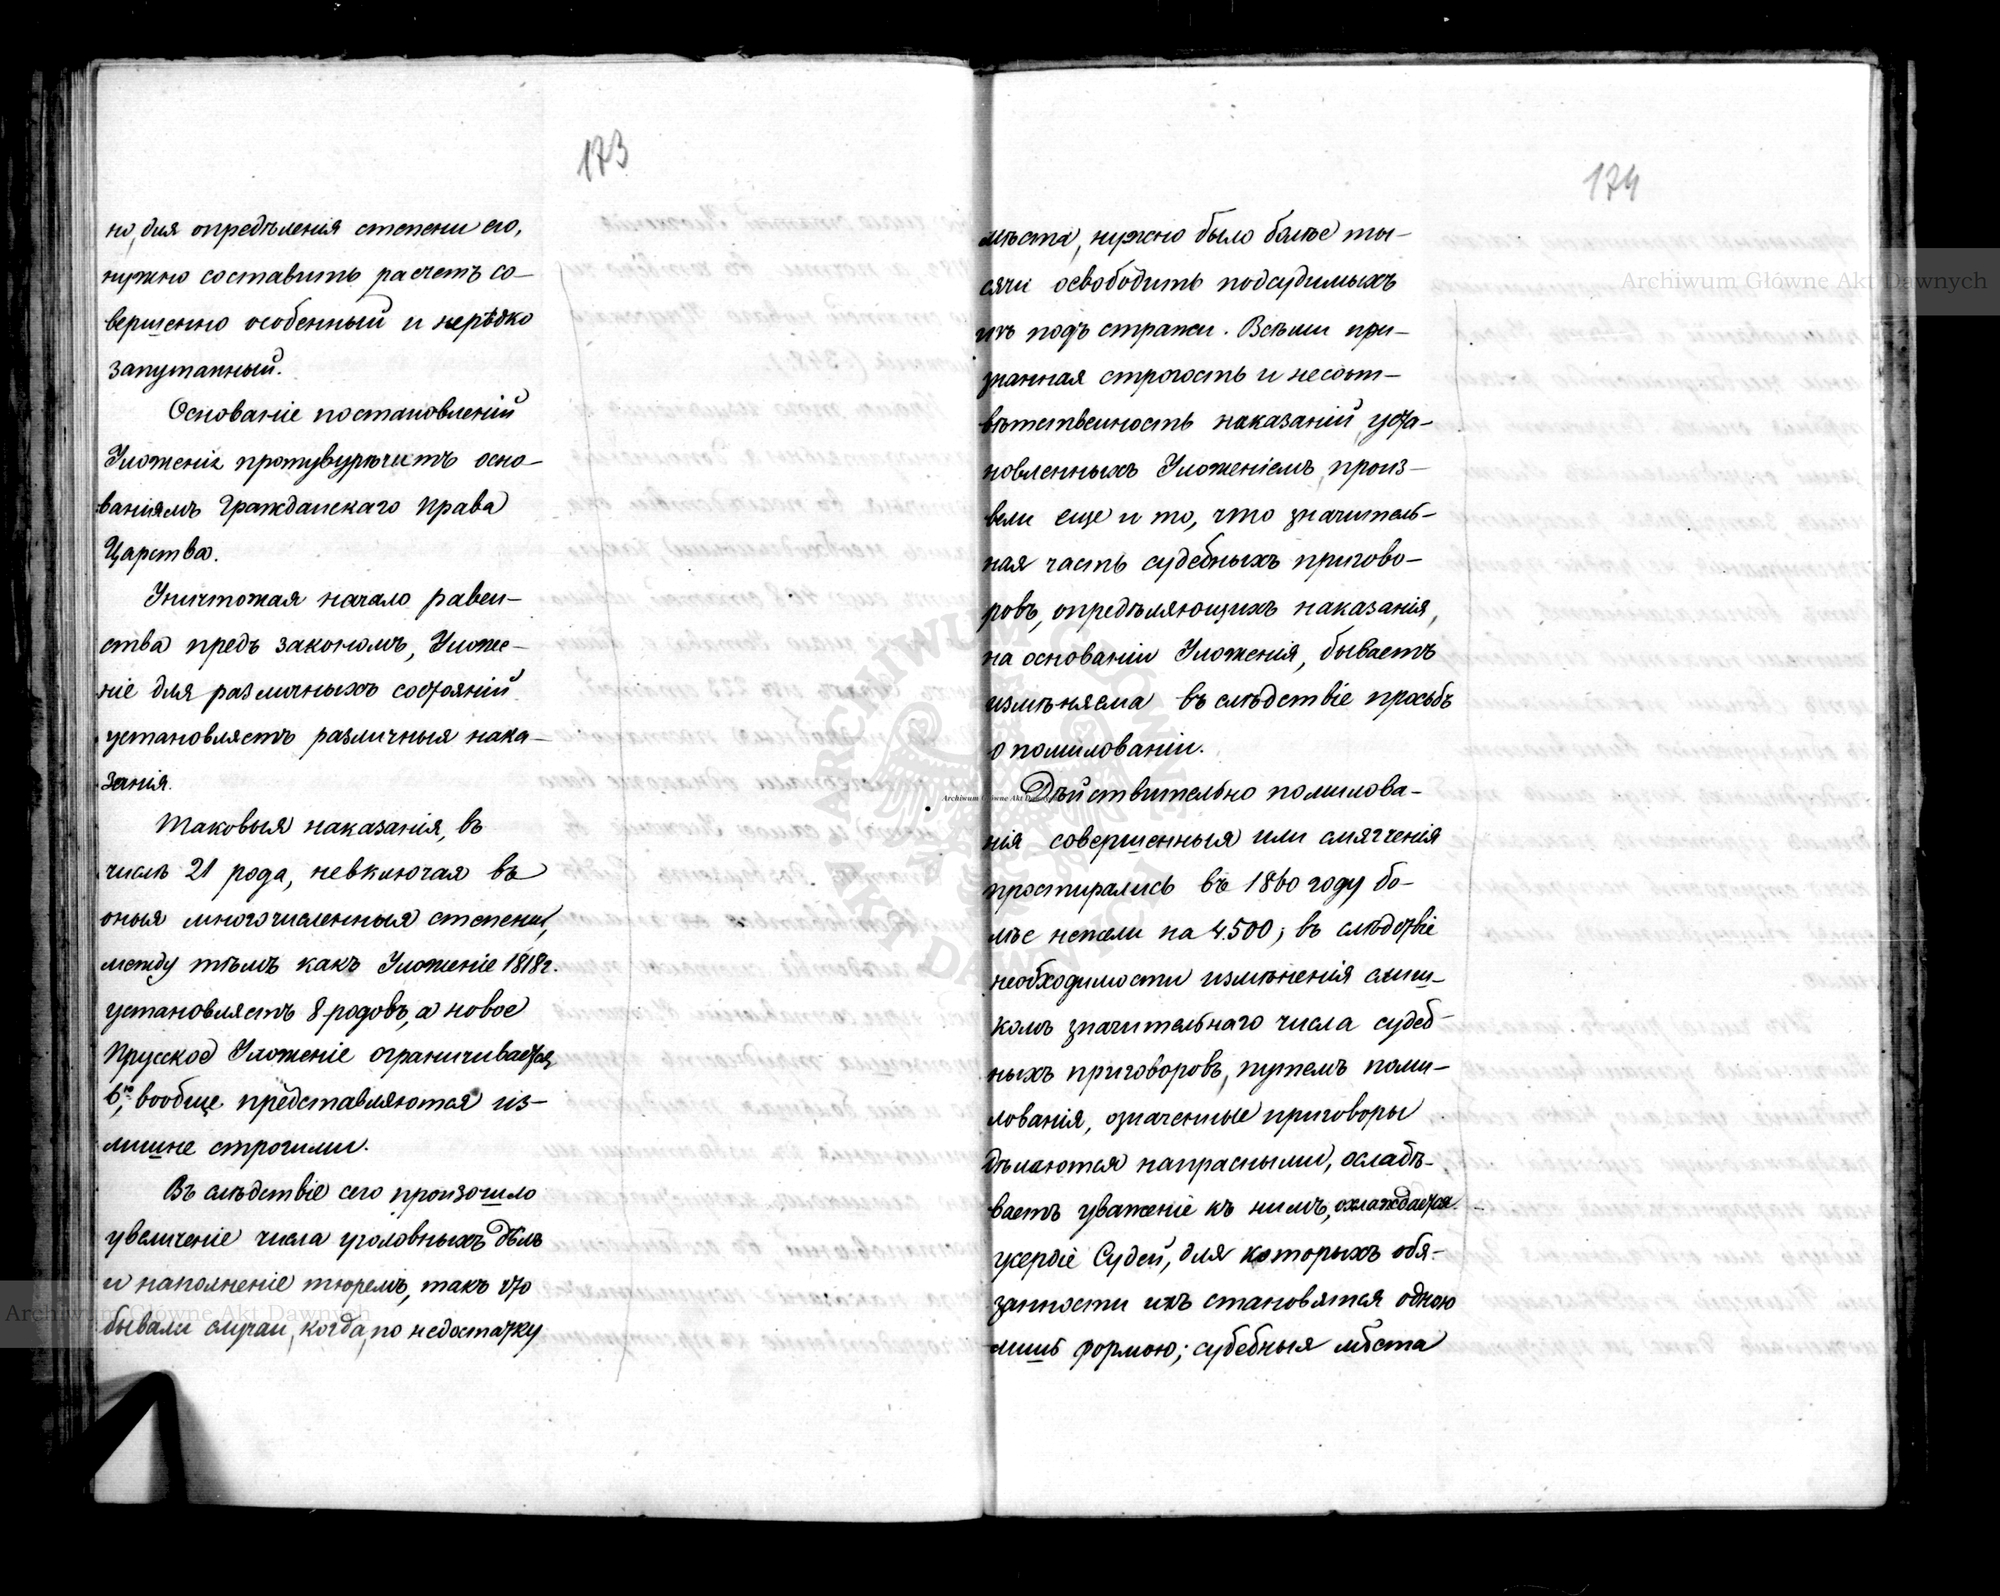 173
но, для опредѣленія степени его,
нужно составить расчетъ со-
вершенно особенный и нерѣдко
запутанный.
Основаніе постановленій
Уложенія противурѣчитъ осно-
ваніямъ Гражданскаго Права
Царства.
Уничтожая начало равен-
ства предъ закономъ, Уложе-
ніе для различныхъ состояній
установляетъ различныя нака-
занія.
Таковыя наказанія, въ
числѣ 21 рода, невключая въ
оныя многочисленныя степени,
между тѣмъ какъ Уложеніе 1818 г.
установляетъ 8 родовъ, а новое
Прусское Уложеніе ограничивается
6ю, вообще представляются из-
лишне строгими.
Въ слѣдствіе сего произошло
увеличеніе числа уголовныхъ дѣлъ
и наполненіе тюремъ, такъ что
бывали случаи, когда, по недостатку
174
мѣста, нужно было болѣе ты-
сячи освободить подсудимыхъ
изъ подъ стражи. Всѣми при-
знанная строгость и несоот-
вѣтственность наказаній, уста-
новленныхъ Уложеніемъ, произ-
вели еще и то, что значитель-
ная часть судебныхъ пригово-
ровъ, опредѣляющихъ наказанія,
на основаніи Уложенія, бываетъ
измѣняема въ слѣдствіе просьбъ
о помилованіи.
Дѣйствительно помилова-
нія совершенныя или смягченія
простирались въ 1860 году бо-
лѣе нежели на 4.500; въ слѣдствіе
необходимости измѣненія слиш-
комъ значительнаго числа судеб-
ныхъ приговоровъ, путемъ поми-
лованія, означенные приговоры
дѣлаются напрасными, ослабѣ-
ваетъ уваженіе къ нимъ, охлаждается
усердіе Судей, для которыхъ обя-
занности ихъ становятся одною
лишь формою; судебныя мѣста
Archiwum Główne Akt Dawnych
Archiwum Główne Akt Dawnych
Archiwum Główne Akt Dawnych
ARCHIWUM GŁÓWNE AKT DAWNYCH